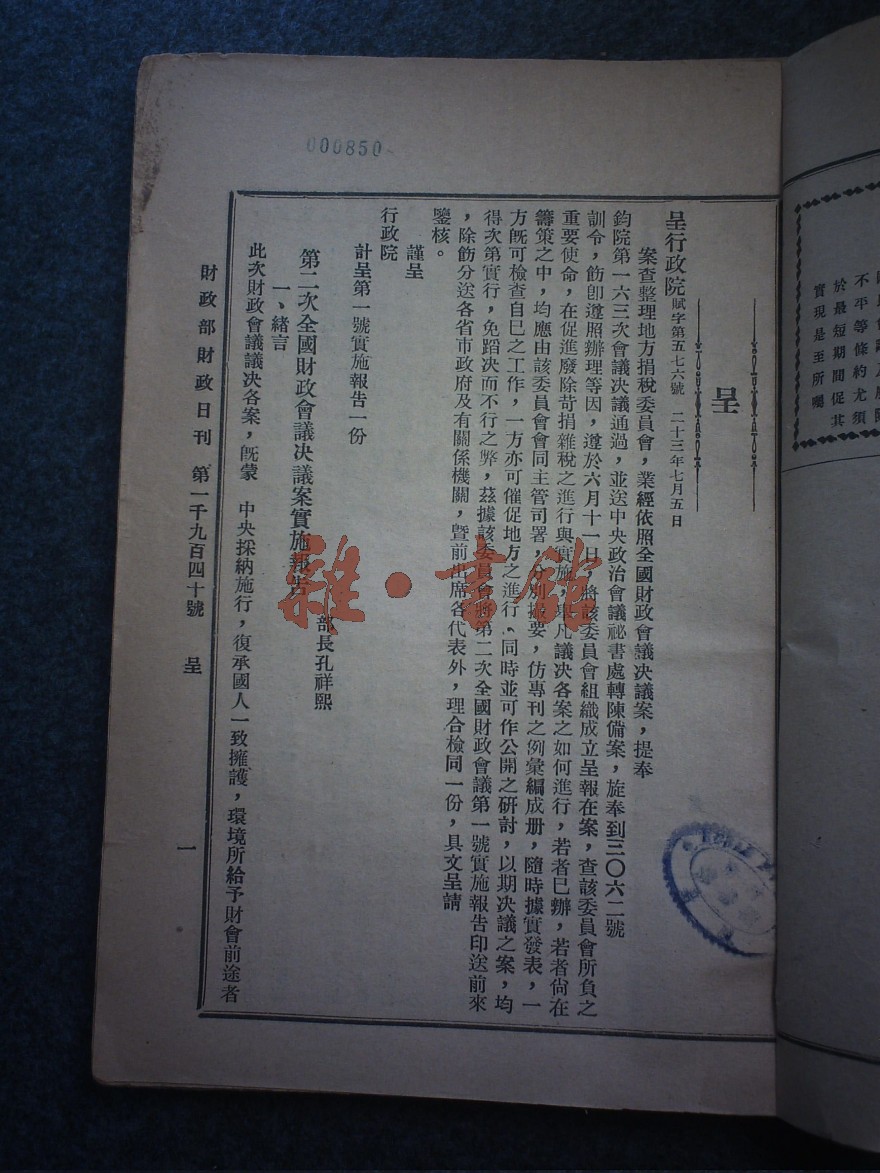 000850
呈
呈行政院 賦字第五七六號 二十三年七月五日
案查整理地方捐稅委員會，業經依照全國財政會議決議案，提奉
鈞院第一六三次會議決議通過，並送中央政治會議祕書處轉陳備案，旋奉到三〇六二號
訓令，飭卽遵照辦理等因，遵於六月十一日，將該委員會組織成立呈報在案，查該委員會所負之
重要使命，在促進廢除苛捐雜稅之進行與實施，舉凡議決各案之如何進行，若者已辦，若者尙在
籌策之中，均應由該委員會會同主管司署，分別撮要，仿專刊之例彙編成册，隨時據實發表，一
方旣可檢查自已之工作，一方亦可催促地方之進行、同時並可作公開之研討，以期決議之案，均
得次第實行，免蹈決而不行之弊，茲據該委員會將第二次全國財政會議第一號實施報告印送前來
，除飭分送各省市政府及有關係機關，暨前出席各代表外，理合檢同一份，具文呈請
鑒核。
謹呈
行政院
計呈第一號實施報告一份
部長孔祥熙
第二次全國財政會議決議案實施報告
一、緒言
此次財政會議議決各案，旣蒙 中央採納施行，復承國人一致擁護，環境所給予財會前途者
財政部財政日刊 第一千九百四十號 呈 一
不平等條約尤須
於最短期間促其
實現是至所囑
雜·書館